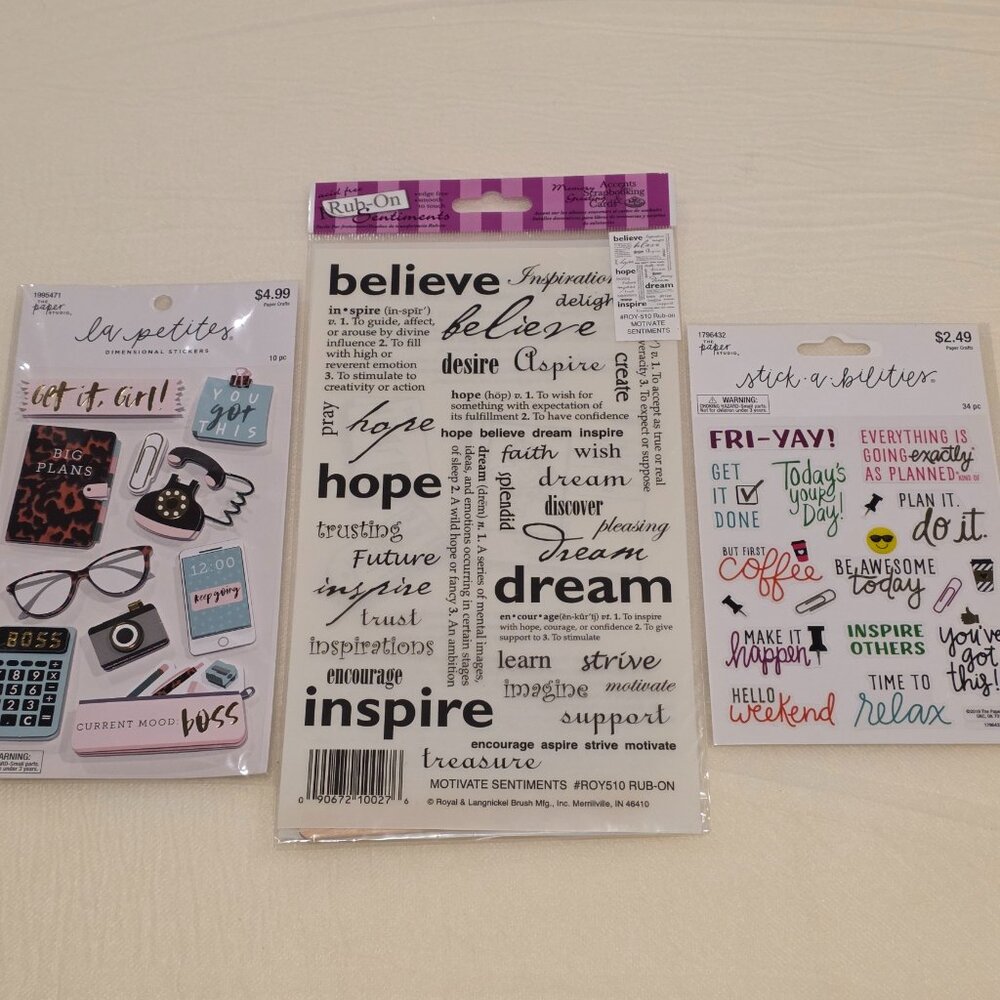 1995471
THE
paper
STUDIO
$4.99
Paper Crafts
la petites
DIMENSIONAL STICKERS
10 pc
Get it, Girl!
YOU
got
THIS
BIG
PLANS
12:00
keep going
BOSS
CURRENT MOOD: boss
WARNING:
acid free
Rub-On
Sentiments
Memory
Accents
Scrapbooking
Cards
believe
hope
dream
inspire
#ROY-510 Rub-on
MOTIVATE
SENTIMENTS
believe Inspiration
in•spire (in-spīr')
v. 1. To guide, affect,
or arouse by divine
influence 2. To fill
with high or
reverent emotion
3. To stimulate to
creativity or action
believe
desire Aspire
create
hope (hōp) v. 1. To wish for
something with expectation of
its fulfillment 2. To have confidence
pray
hope
hope believe dream inspire
veracity 3. To expect or suppose
v. 1. To accept as true or real
faith wish
hope
splendid
dream
discover
pleasing
dream
dream (drēm) n. 1. A series of mental images,
ideas, and emotions occurring in certain stages
of sleep 2. A wild hope or fancy 3. An ambition
trusting
Future
inspire
trust
inspirations
encourage
inspire
dream
en•cour•age(ĕn-kûr'ĭj) vt. 1. To inspire
with hope, courage, or confidence 2. To give
support to 3. To stimulate
learn strive
imagine motivate
support
encourage aspire strive motivate
treasure
MOTIVATE SENTIMENTS #ROY510 RUB-ON
0 90672 10027 6
© Royal & Langnickel Brush Mfg., Inc. Merrillville, IN 46410
1796432
THE
paper
STUDIO
$2.49
Paper Crafts
stick·a·bilities
WARNING:
CHOKING HAZARD-Small parts.
Not for children under 3 years.
34 pc
FRI-YAY!
EVERYTHING IS
GOING exactly
AS PLANNED-KIND OF
GET
IT
DONE
Today's
your
Day!
PLAN IT.
do it.
BUT FIRST
coffee
BE AWESOME
today
MAKE IT
happen
INSPIRE
OTHERS
You've
got
this!
HELLO
weekend
TIME TO
relax